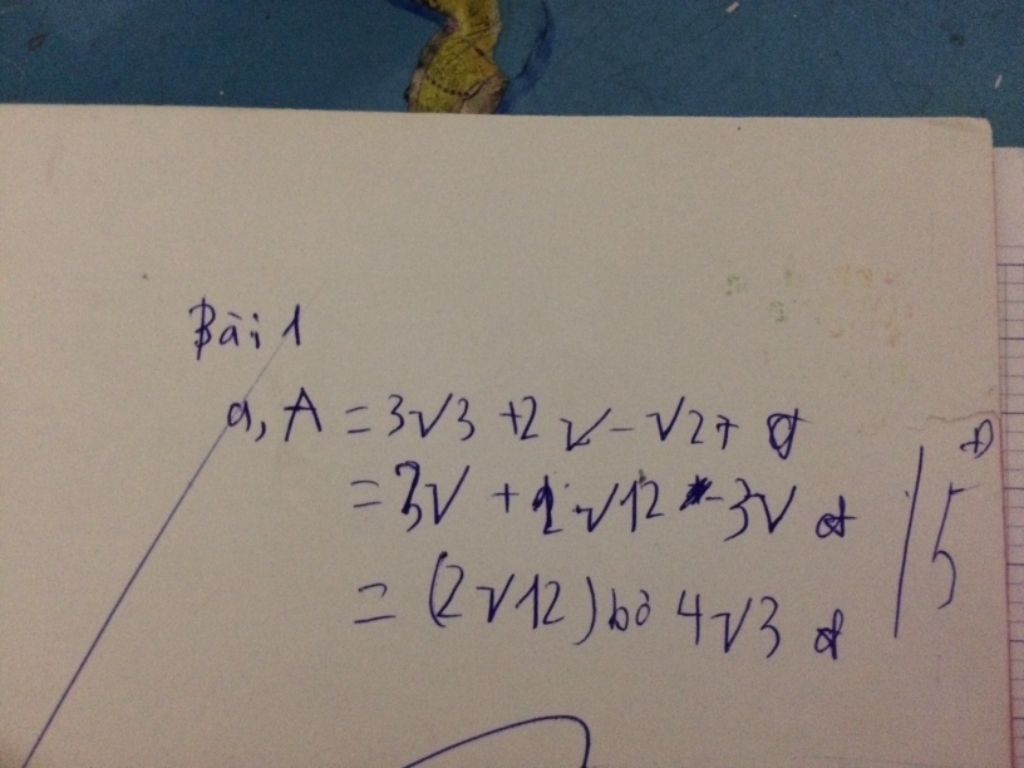 Bài 1
a, A = 3√3 + 2√ - √27
= 3√ + √12 - 3√
= (2√12) bỏ 4√3
15